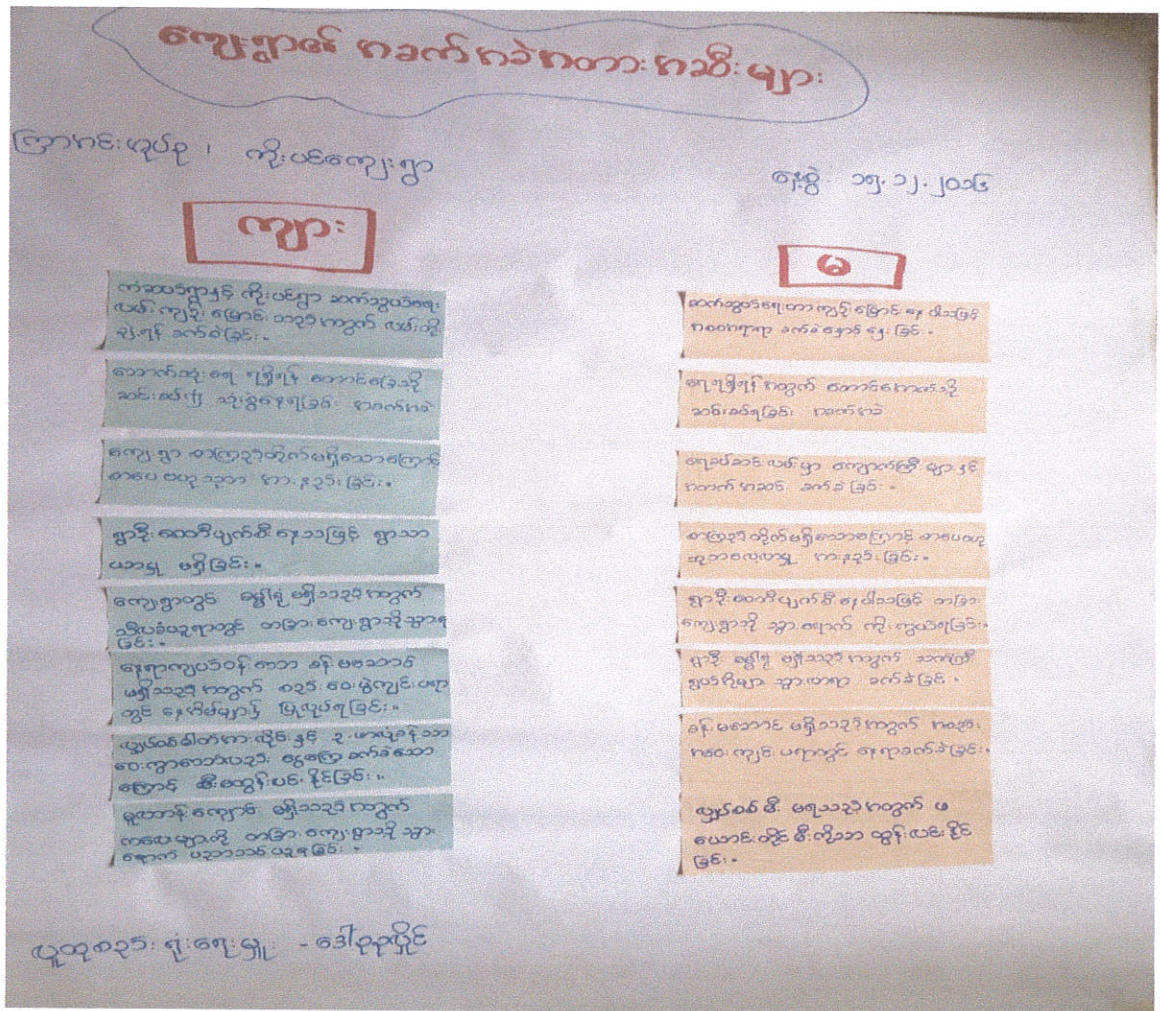 ကျေးရွာ၏ အခက်အခဲအတားအဆီးများ
ကြာအင်းအုပ်စု ၊ ကိုးပင်ကျေးရွာ
နေ့စွဲ - ၁၅.၁၂.၂၀၁၆
ကျား
ကိုးပင်ရွာ ဆက်သွယ်ရေး
လမ်း ကျဉ်းမြောင်းသည့်အတွက် လမ်းသို့
ခက်ခဲခြင်း။
သောက်သုံးရေ ရရှိရန် တောင်ခြေသို့
ဆင်းခပ်၍ သုံးစွဲနေရခြင်း အခက်အခဲ
ကျေးရွာ စာကြည့်တိုက်မရှိသောကြောင့်
စာပေ ဗဟုသုတ အားနည်းခြင်း။
ရွာဦးစေတီပျက်စီးနေသဖြင့် ရွာသာ
ယာမှု မရှိခြင်း။
ကျေးရွာတွင် ဓမ္မာရုံ မရှိသည့်အတွက်
သီလခံယူရာတွင် တခြားကျေးရွာသို့သွားရ
ခြင်း။
နေရာကျယ်ဝန်းသော ခန်းမဆောင်
မရှိသည့်အတွက် စည်းဝေးပွဲကျင်းပရာ
တွင် နေအိမ်များ၌ ပြုလုပ်ရခြင်း။
လျှပ်စစ်ဓါတ်အားလိုင်းနှင့်
ဝေးကွာသောလည်း ငွေကြေးခက်ခဲသော
ကြောင့် မီးမထွန်းလင်းနိုင်ခြင်း။
မူလတန်းကျောင်း မရှိသည့်အတွက်
ကလေးများကို တခြားကျေးရွာသို့ သွား
ရောက် ပညာသင်ယူရခြင်း။
မ
ဆက်သွယ်ရေးတာကျဉ်းမြောင်းနေပါသဖြင့်
အစစအရာရာ ခက်ခဲနှောင့်နှေးခြင်း။
ရေရရှိရန်အတွက် တောင်အောက်သို့
ဆင်းခပ်ရခြင်း အခက်အခဲ
ရေခပ်ဆင်းလမ်းမှာ ကျောက်ကြီးများနှင့်
အတက်အဆင်း ခက်ခဲခြင်း။
စာကြည့်တိုက်မရှိသောကြောင့် စာပေဗဟု
သုတလေ့လာမှု အားနည်းခြင်း။
ရွာဦးစေတီပျက်စီးနေပါသဖြင့် တခြား
ကျေးရွာသို့ သွားရောက် ကိုးကွယ်ရခြင်း။
ရွာ၌ ဓမ္မာရုံ မရှိသည့်အတွက် သက်ကြီး
ရွယ်အိုများ သွားလာရာ ခက်ခဲခြင်း။
ခန်းမဆောင် မရှိသည့်အတွက် အစည်း
အဝေးကျင်းပရာတွင် နေရာခက်ခဲခြင်း။
လျှပ်စစ်မီး မရသည့်အတွက် ဖ
ယောင်းတိုင်မီးကိုသာ ထွန်းလင်းနိုင်
ခြင်း။
လူထုစည်းရုံးရေးမှူး - ဒေါ်ဥဥလှိုင်